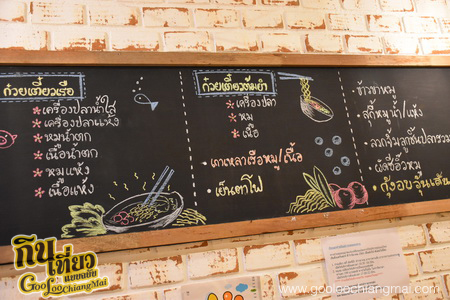 ก๋วยเตี๋ยวเรือ
* เครื่องปลาน้ำใส
* เครื่องปลาแห้ง
* หมูน้ำตก
* เนื้อน้ำตก
* หมูแห้ง
* เนื้อแห้ง
ก๋วยเตี๋ยวต้มยำ
* เครื่องปลา
* หมู
* เนื้อ
• เกาเหลาเรือหมู/เนื้อ
• เย็นตาโฟ
• ข้าวขาหมู
• สุกี้หมูน้ำ/แห้ง
• ลวกจิ้มลูกชิ้นปลารวม
• ผัดซีอิ๊วหมู
• กุ้งอบวุ้นเส้น
กิน
เที่ยว
แบบฉบับ
GooLooChiangMai
www.gooloochiangmai.com